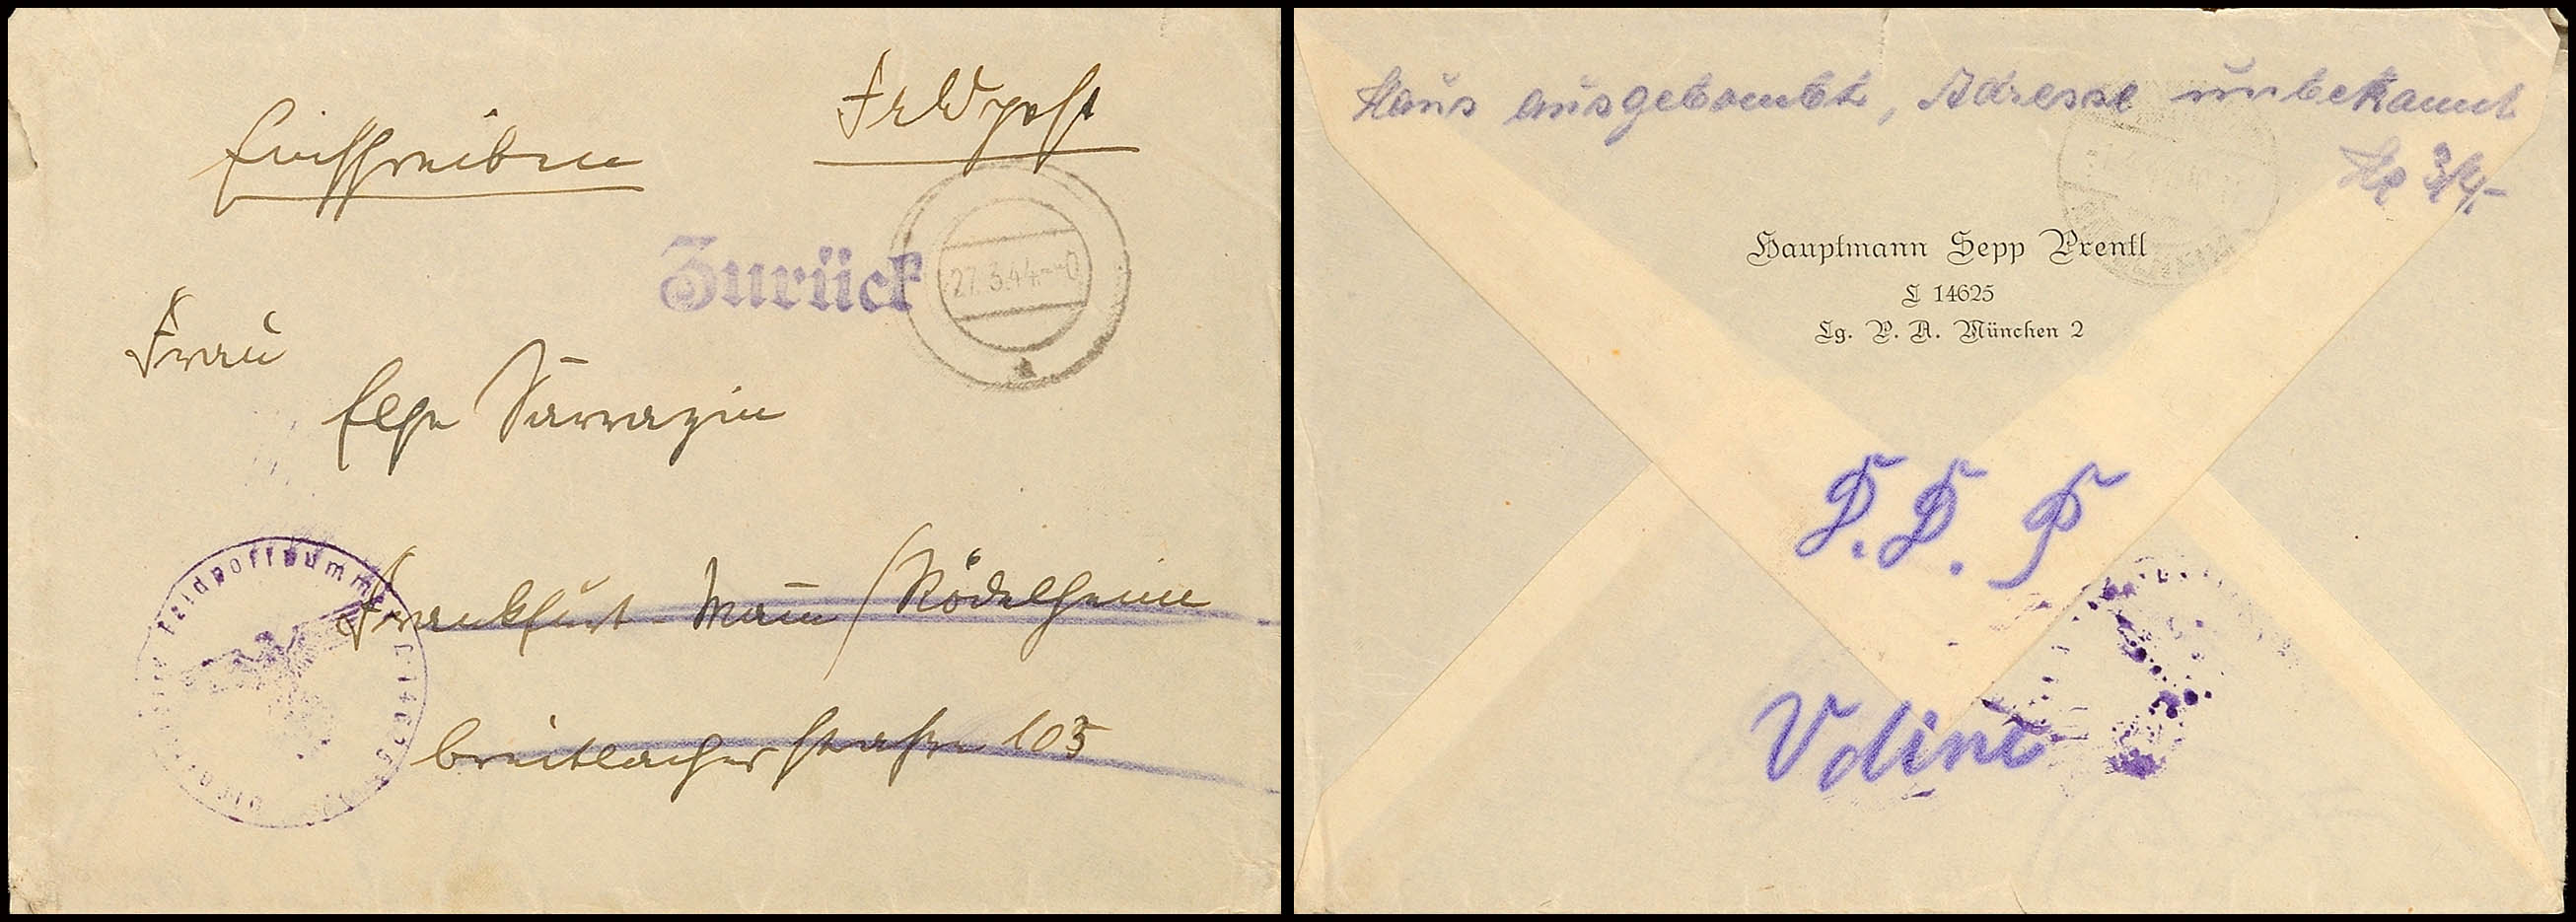 Einschreiben
Feldpost
Zurück
27.3.44
Frau
Else Sarrazin
Feldpostnummer
Frankfurt-Main/Rödelheim
Breitlacherstraße 103
Haus ausgebombt, Adresse unbekannt
3/4.
Hauptmann Sepp Prentl
L 14625
Lg. P. A. München 2
Udine